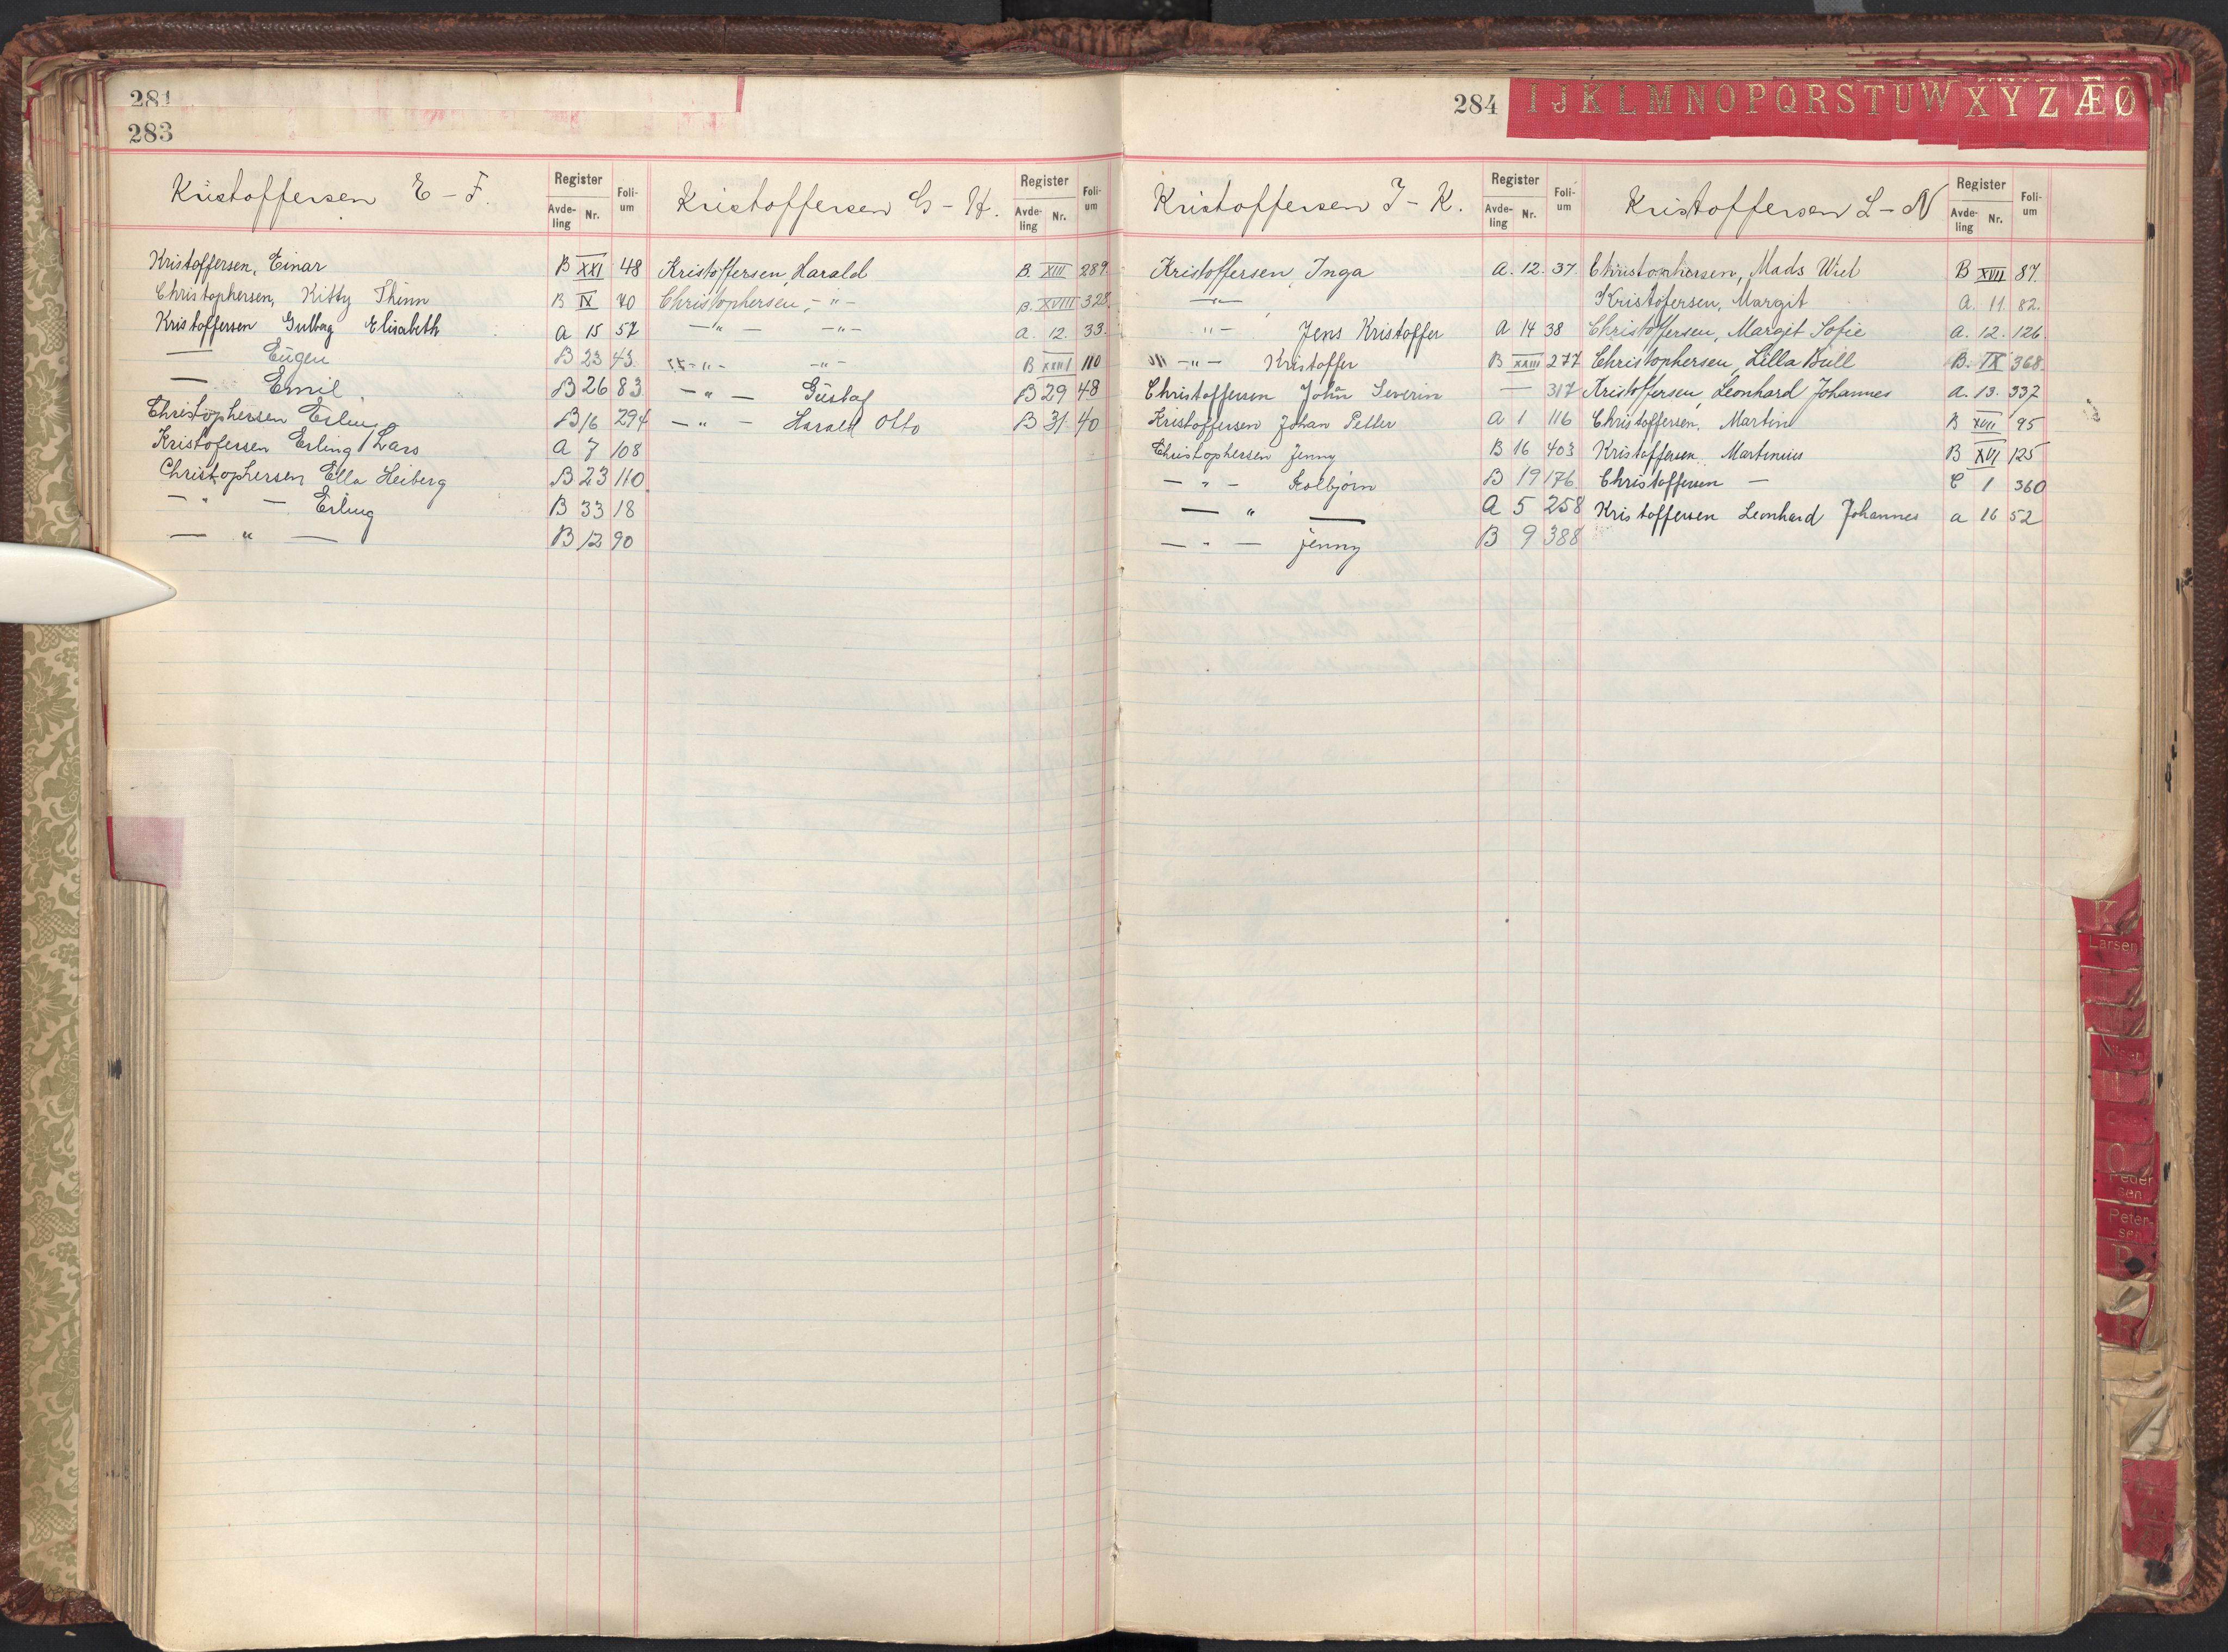 281
283
Kristoffersen E - F.
Register
Avde-
ling
Nr.
Foli-
um
Kristoffersen, Einar B XXI 48
Christophersen, Kitty Thinn B IX 40
Kristoffersen Gulbog Elisabeth A 15 57
— Eugen B 23 43
— Emil B 26 83
Christophersen Erling B 16 294
Kristofersen Erling Lars A 7 108
Christophersen Ella Heiberg B 23 110
— " — Erling B 33 18
— " — B 12 90
Kristoffersen G - H.
Register
Avde-
ling
Nr.
Foli-
um
Kristoffersen, Harald B. XIII 289.
Christophersen, - " - B. XVIII 328.
- " - - " - A. 12. 33.
- " - - " - B XXIII 110
- " - Gustaf B 29 48
- " - Harald Otto B 31 40
284
I J K L M N O P Q R S T U W X Y Z Æ Ø
Kristoffersen I - K.
Register
Avde-
ling
Nr.
Foli-
um
Kristoffersen, Inga A. 12. 37
- " -
" - Jens Kristoffer A 14 38
- " - Kristoffer B XXIII 277
Christoffersen John Severin — 317
Kristoffersen Johan Petter A 1 116
Christophersen Jenny B 16 403
- " - Kolbjørn B 19 176
— " — A 5 258
— " — Jenny B 9 388
Kristoffersen L - N
Register
Avde-
ling
Nr.
Foli-
um
Christophersen, Mads Wiel B XVIII 87.
Kristofersen, Margit A. 11. 82.
Christoffersen, Margit Sofie A. 12. 126.
Christophersen, Lilla Bull B. IX 368.
Kristoffersen, Leonhard Johannes A. 13. 337
Christoffersen, Martin B XVII 95
Kristoffersen, Martinius B XVI 125
Christoffersen — C 1 360
Kristoffersen Leonhard Johannes A 16 52
K
Larsen
O
Peder
sen
Peter-
sen
P
R